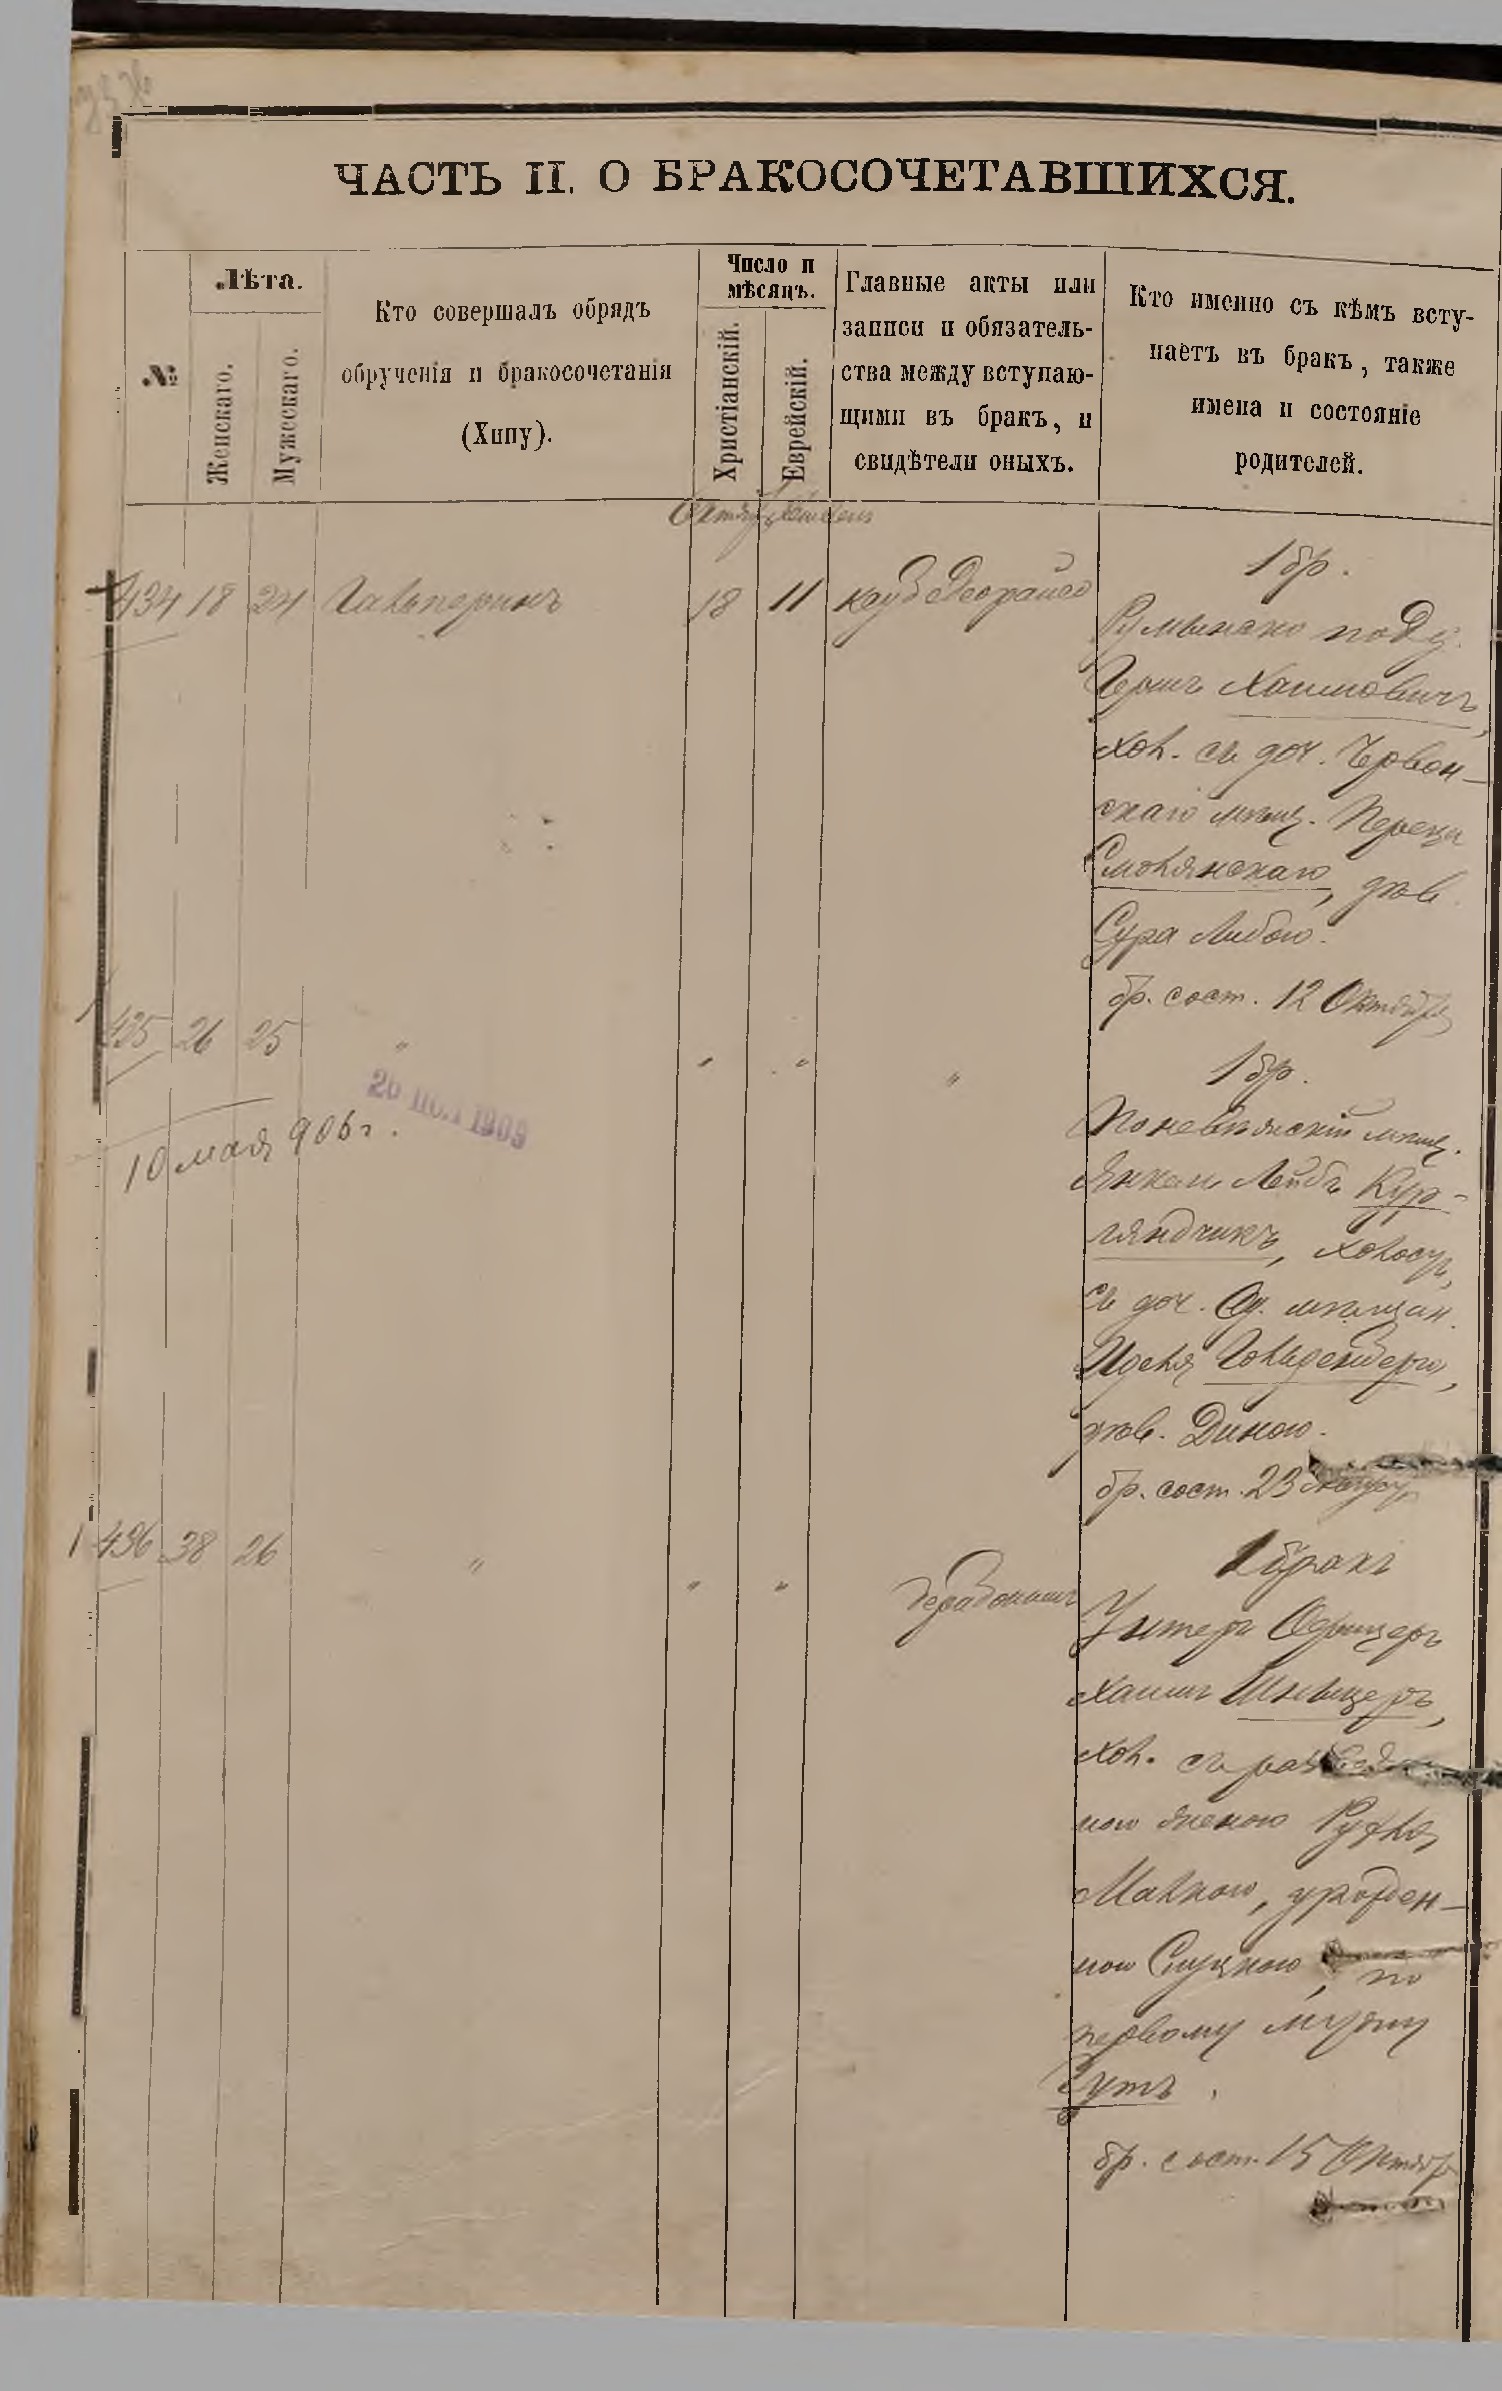 ЧАСТЬ II. О БРАКОСОЧЕТАВШИХСЯ.
№
Лѣта.
Женскаго.
Мужескаго.
Кто совершалъ обрядъ
обрученія и бракосочетанія
(Хипу).
Число и
мѣсяцъ.
Христіанскій.
Еврейскій.
Главные акты или
записи и обязатель-
ства между вступаю-
щими въ бракъ, и
свидѣтели оныхъ.
Кто именно съ кѣмъ всту-
паетъ въ бракъ, также
имена и состояніе
родителей.
434 18 24 Гальперинъ 18 11
1 бр.
Румынско подд.
Гершъ Хаимовичъ,
хол. съ доч. Червон-
скаго мѣщ. Переца
Смолянскаго, дѣв.
Сура Либою.
бр. сост. 12 Октября
435 26 25 " " " "
26 1909
10 мая 906 г.
1 бр.
Поневѣжскій мѣщ.
Янкель Лейбъ Кур-
ляндчикъ, холост,
съ доч. Од. мѣщан.
Иделя Гольденберга,
дѣв. Диною.
бр. сост. 23
1 436 38 26 " " "
1 бракъ
Унтеръ Офицеръ
Хаимъ Шнейцеръ,
хол. съ разведен
ною женою Рухля
Малкою, урожден-
ною Слуцкою, по
первому мужу
Гутъ.
бр. сост. 15 Октябр